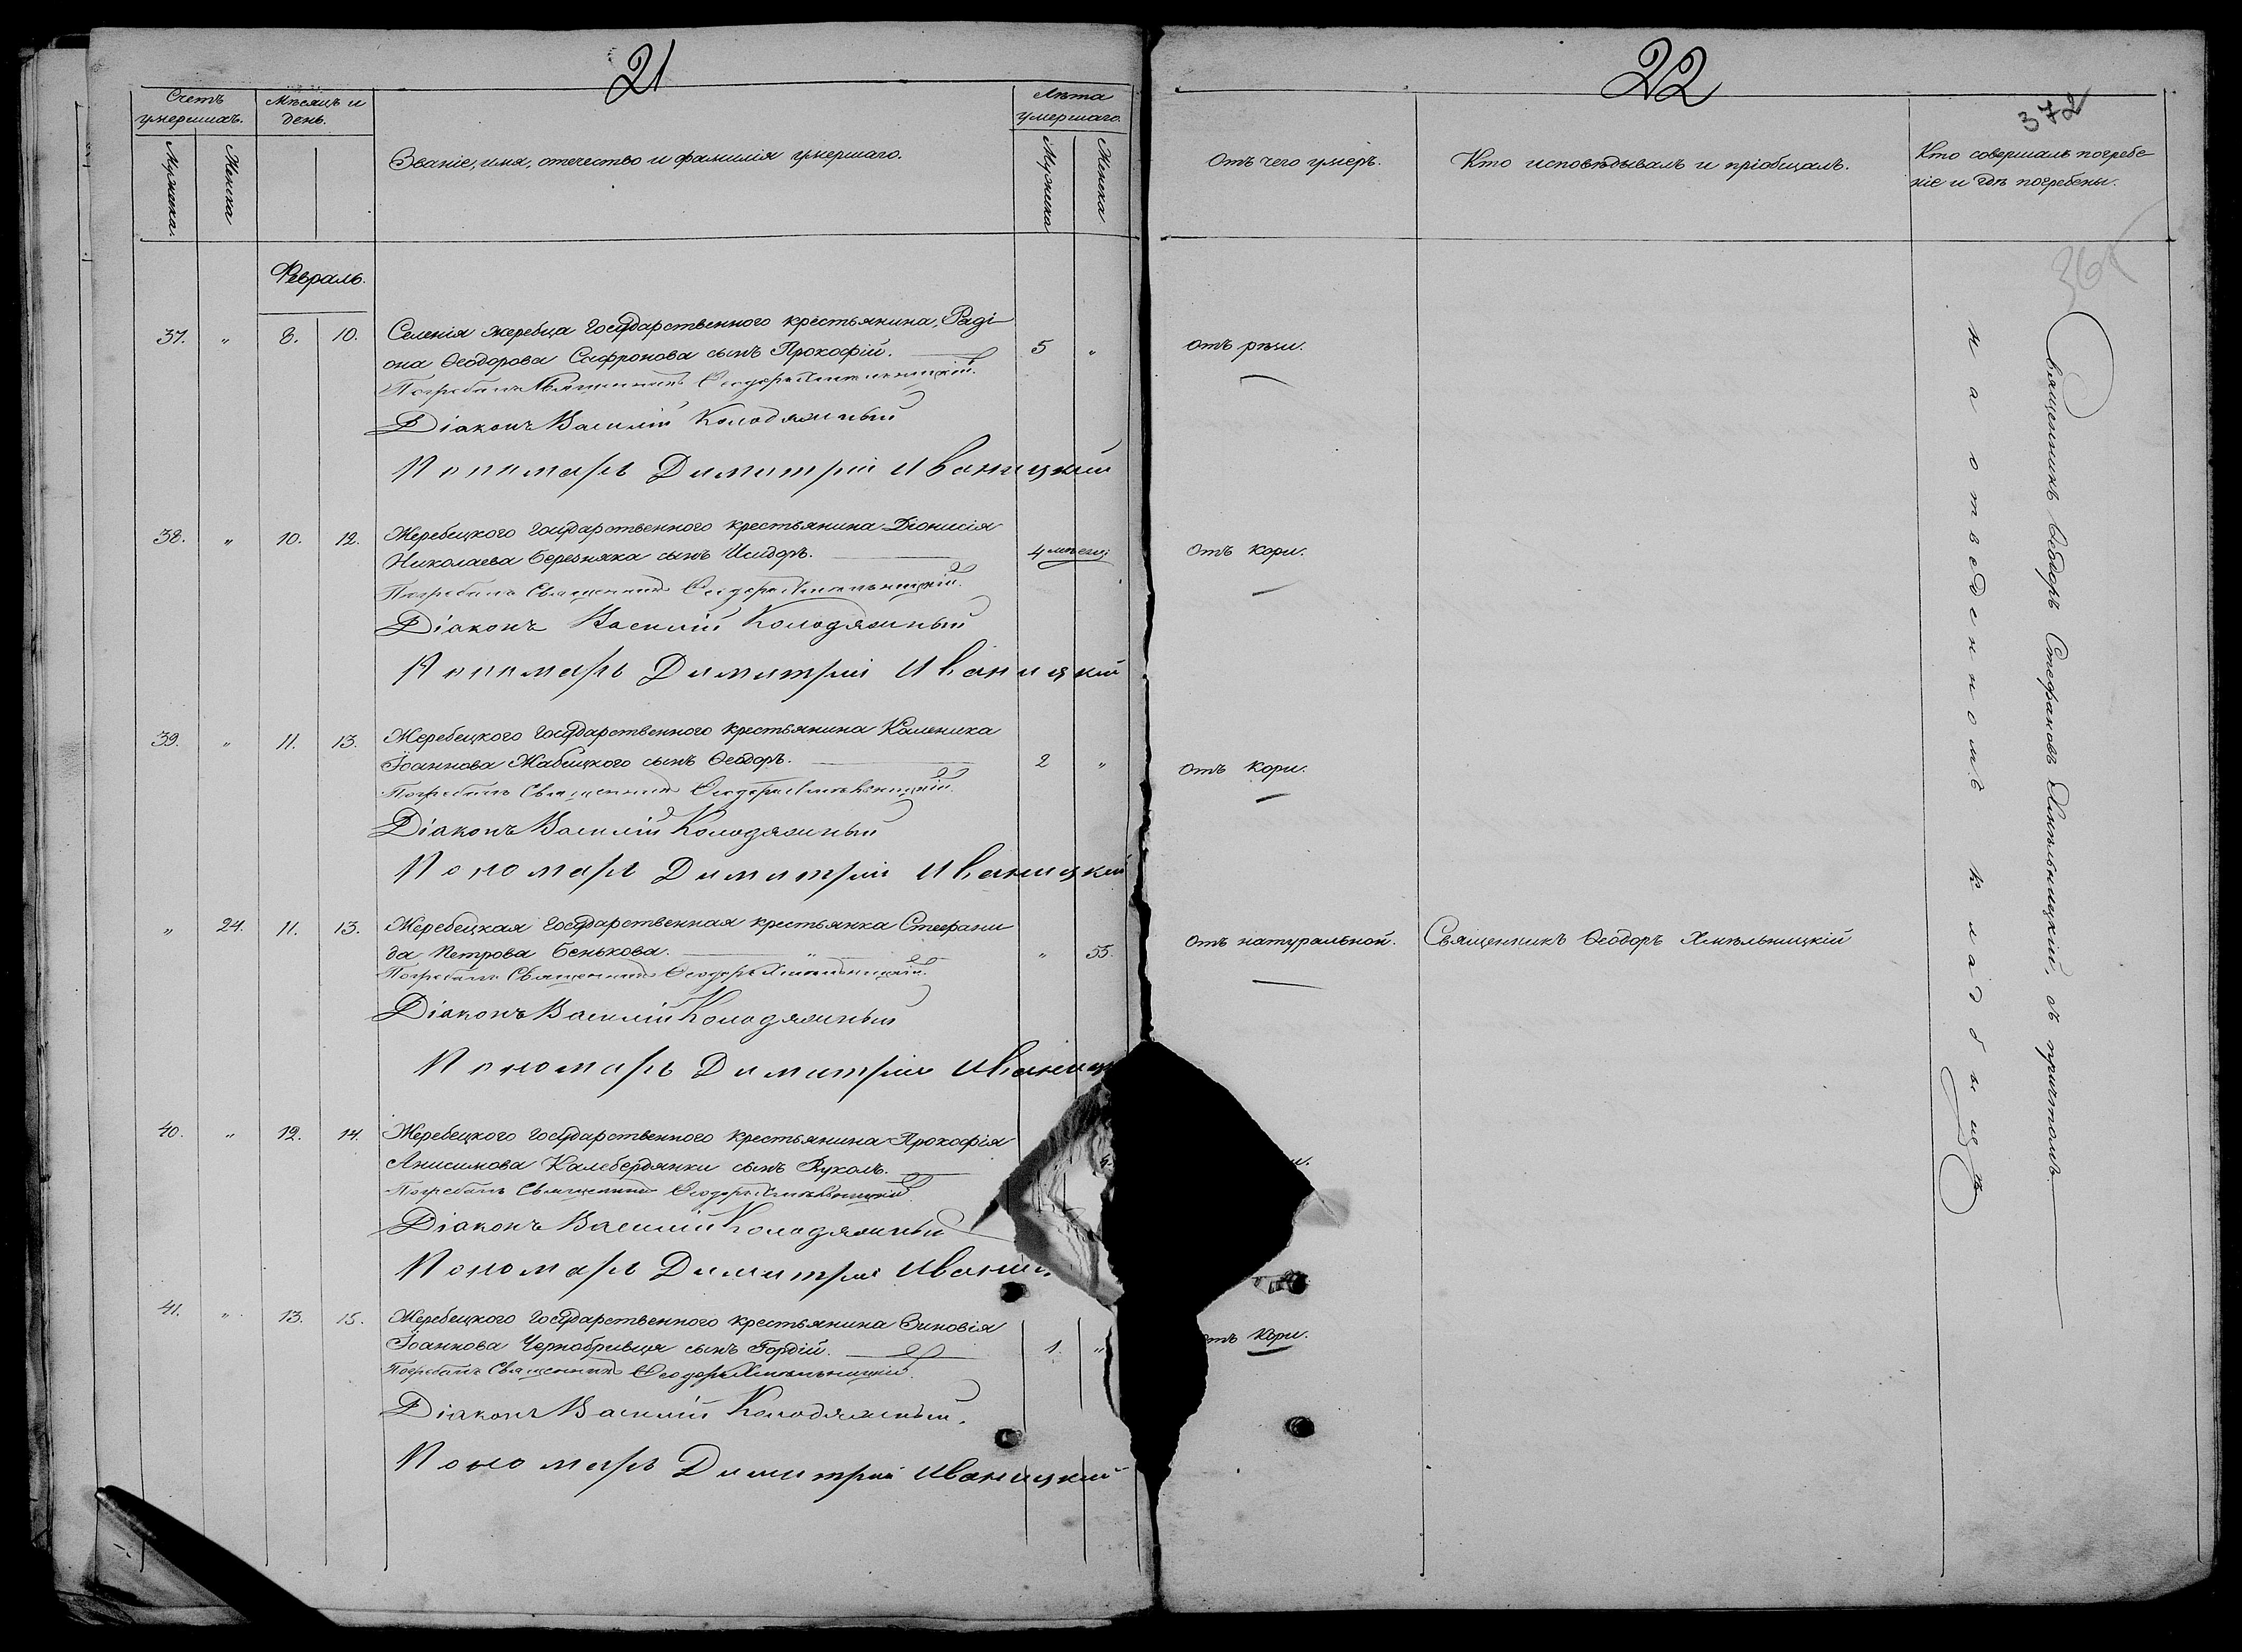 21
Счетъ умершихъ.
Мѣсяцъ и день.
Званіе, имя, отечество и фамилія умершаго.
Лѣта умершаго.
Мужеска.
Женска
Мужеска
Женска
Февраль.
37. " 8. 10. Селенія Жеребца Государственного крестьянина, Радi
она Ѳеодорова Сафронова сынъ Прокофій. 5 "
Погребалъ Священникъ Ѳеодоръ Хмѣльницкій.
Діаконъ Василій Колодяжный
Пономарь Димитрій Иваницкий
38. " 10. 12. Жеребецкого Государственного крестьянина Діонисія
Николаева Березняка сынъ Исидоръ. 4 мѣсяц
Погребалъ Священникъ Ѳеодоръ Хмѣльницкій.
Діаконъ Василій Колодяжный
Пономарь Димитрій Иваницкій
39. " 11. 13. Жеребецкого Государственного крестьянина Каленика
Іоаннова Жабицкого сынъ Ѳеодоръ. 2 "
Погребалъ Священникъ Ѳеодоръ Хмѣльницкій.
Діаконъ Василій Колодяжный
Пономарь Димитрій Иваницкій
" 24. 11. 13. Жеребецкая Государственная крестьянка Стефани
да Петрова Бенькова. " " 55.
Погребалъ Священникъ Ѳеодоръ Хмѣльницкій.
Діаконъ Василій Колодяжный
Пономарь Димитрій Иваниц
40. " 12. 14. Жеребецкого Государственного крестьянина Прокофія
Анисимова Калебердянки сынъ Вуколъ.
Погребалъ Священникъ Ѳеодоръ Хмѣльницкій.
Діаконъ Василій Колодяжный
Пономарь Димитрій Иваниц
41. " 13. 15. Жеребецкого Государственного крестьянина Зиновія
Іоаннова Чернобривця сынъ Гордій. 1. "
Погребалъ Священникъ Ѳеодоръ Хмѣльницкій.
Діаконъ Василій Колодяжный.
Пономарь Димитрій Иваницкий
22
372
Отъ чего умеръ.
Кто исповѣдывалъ и пріобщалъ.
Кто совершалъ погребе
ніе и гдѣ погребены.
отъ рѣзи.
Отъ кори.
Отъ кори.
Отъ натуральной. Священникъ Ѳеодоръ Хмѣльницкій
и.
отъ кори.
Священникъ Ѳеодоръ Стефановъ Хмѣльницкій, съ причтомъ
на отведенномъ кладбищѣ